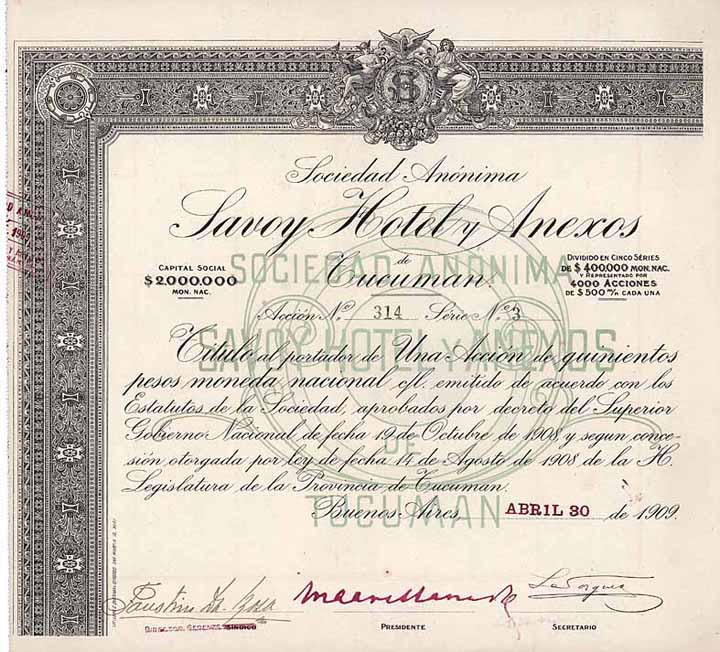 Sociedad Anónima
Savoy Hotel y Anexos
de
Tucuman.
CAPITAL SOCIAL
$ 2.000.000
MON. NAC.
DIVIDIDO EN CINCO SÉRIES
DE $ 400.000 MON. NAC.
Y REPRESENTADO POR
4000 ACCIONES
DE $ 500 m/n CADA UNA
SOCIEDAD ANONIMA
SAVOY HOTEL Y ANEXOS
DE
TUCUMAN
Acción No. 314 Série No. 3
Título al portador de Una Acción de quinientos
pesos moneda nacional c/l. emitido de acuerdo con los
Estatutos de la Sociedad, aprobados por decreto del Superior
Gobierno Nacional de fecha 19 de Octubre de 1908 y segun conce-
sión otorgada por ley de fecha 14 de Agosto de 1908 de la H.
Legislatura de la Provincia de Tucuman.
Buenos Aires, ABRIL 30 de 1909.
Faustino Da Rosa
DIRECTOR GERENTE SÍNDICO
PRESIDENTE
SECRETARIO